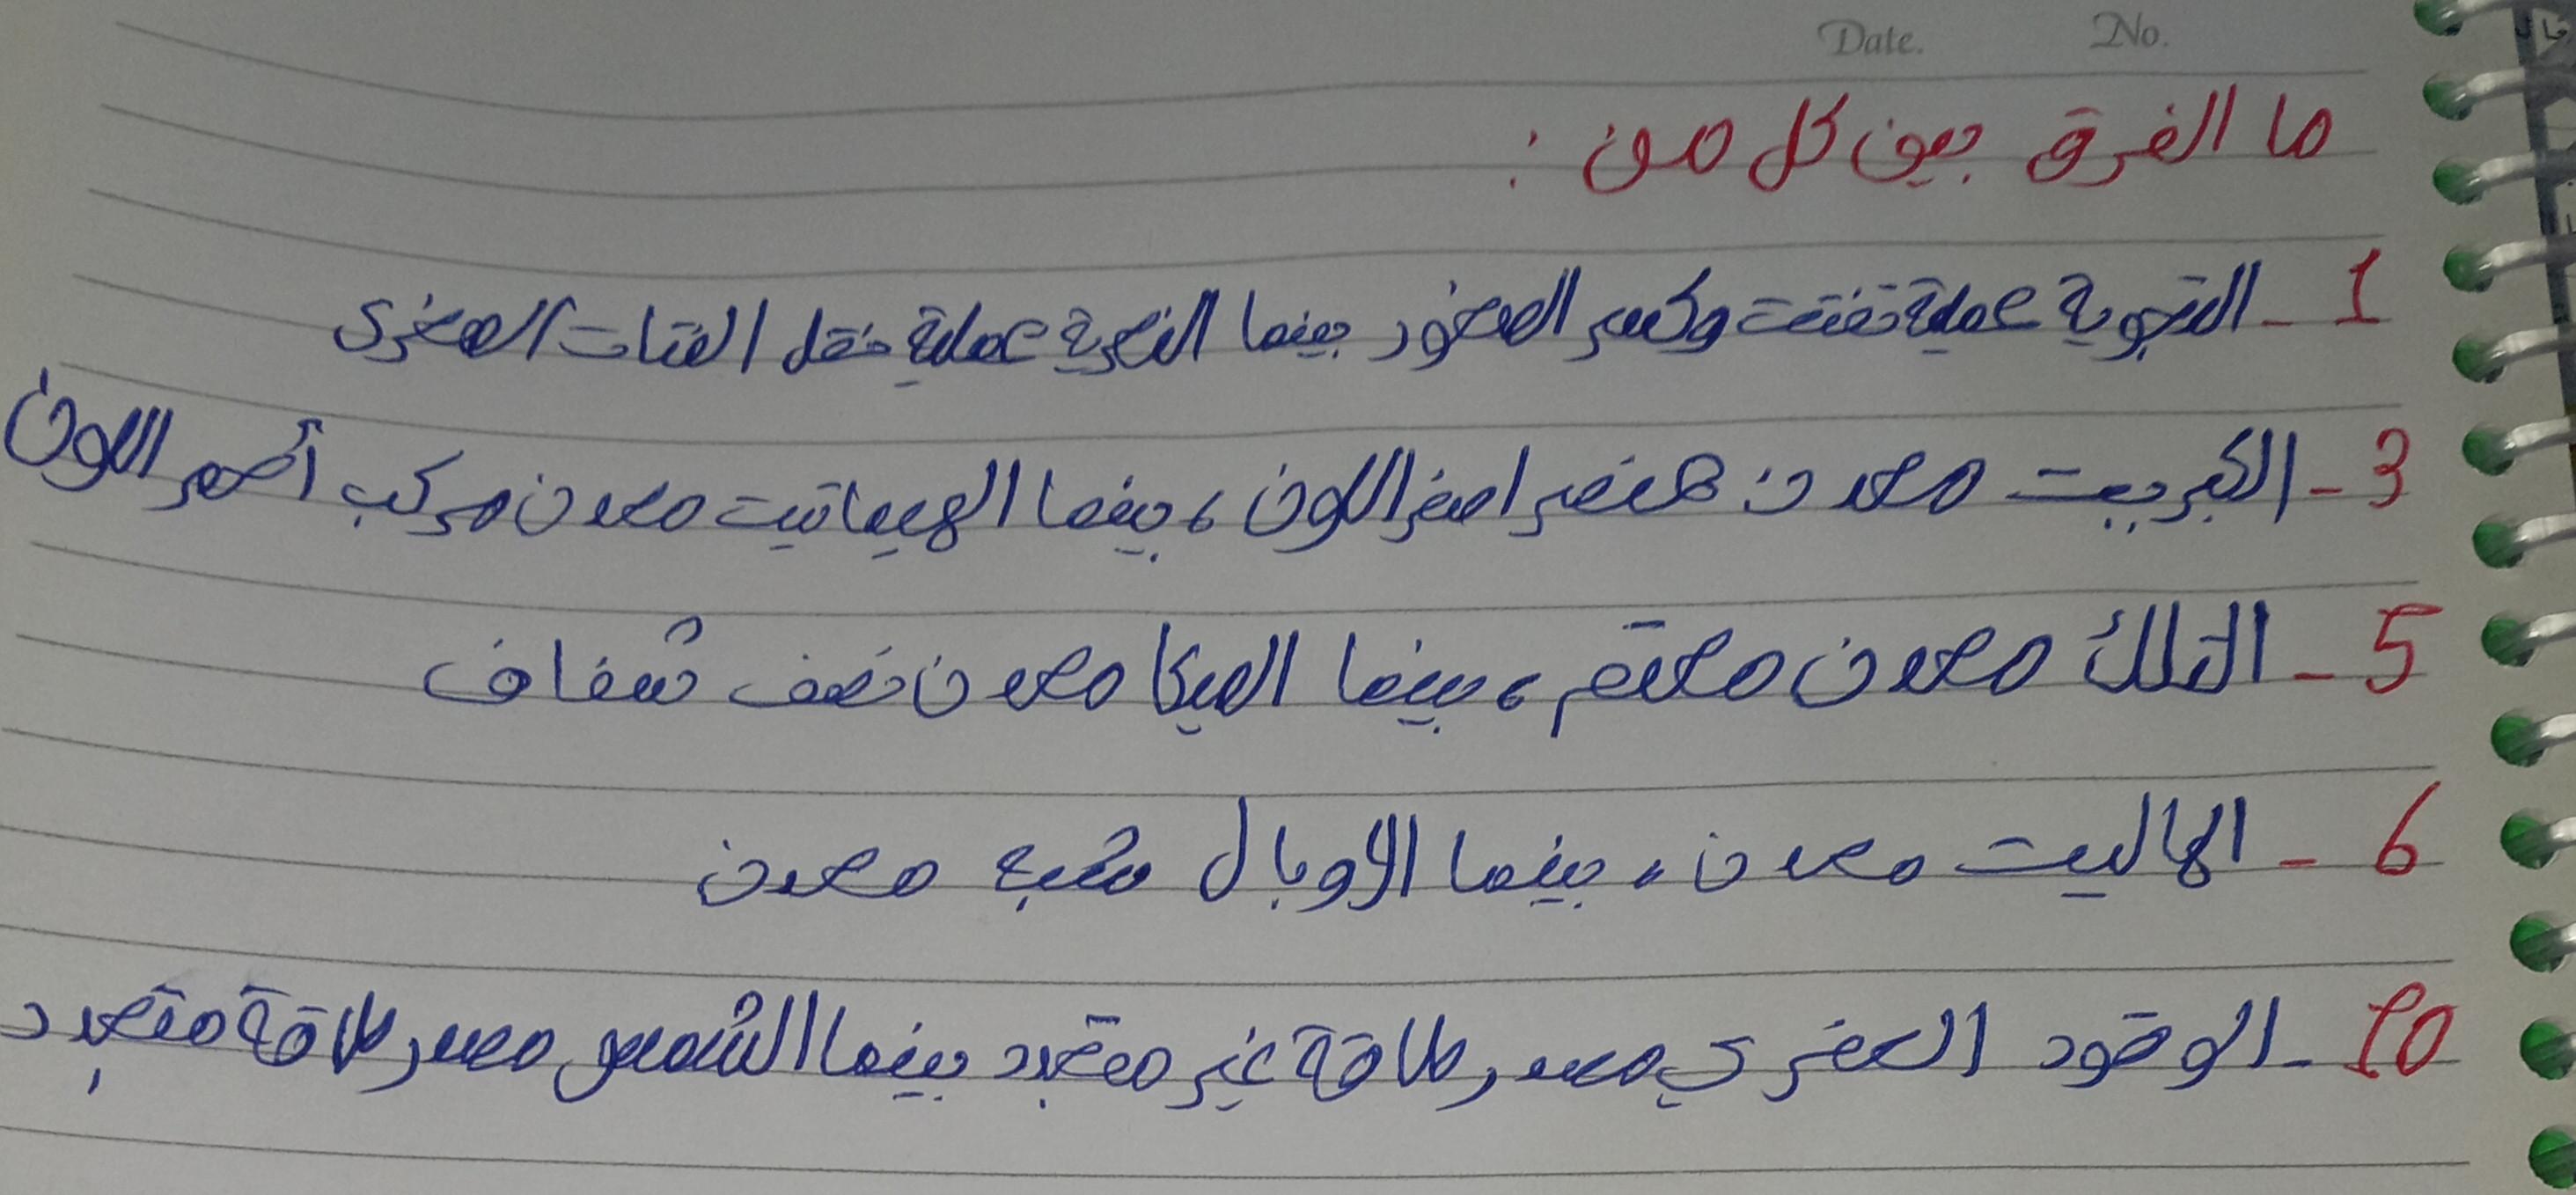 Date. No.
ما الفرق بين كل من :
1 - التجوية عملية تفتت وكسر الصخور بينما التعرية عملية نقل الفتات الصخرى
3 - الكبريت معدن عنصر اصفر اللون ، بينما الهيماتيت معدن مركب أحمر اللون
5 - التلك معدن معتم ، بينما الميكا معدن نصف شفاف
6 - الهاليت معدن ، بينما الاوبال شبه معدن
10 - الوقود الحفري مصدر طاقة غير متجدد بينما الشمس مصدر طاقة متجدد